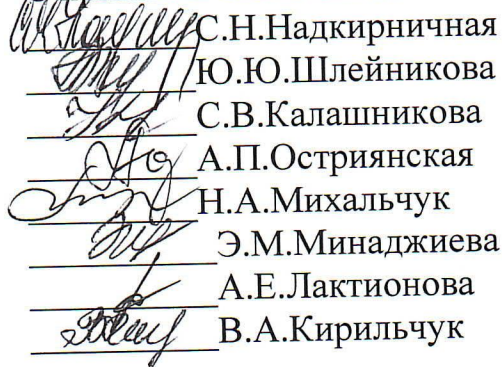 С.Н.Надкирничная
Ю.Ю.Шлейникова
С.В.Калашникова
А.П.Остриянская
Н.А.Михальчук
Э.М.Минаджиева
А.Е.Лактионова
В.А.Кирильчук